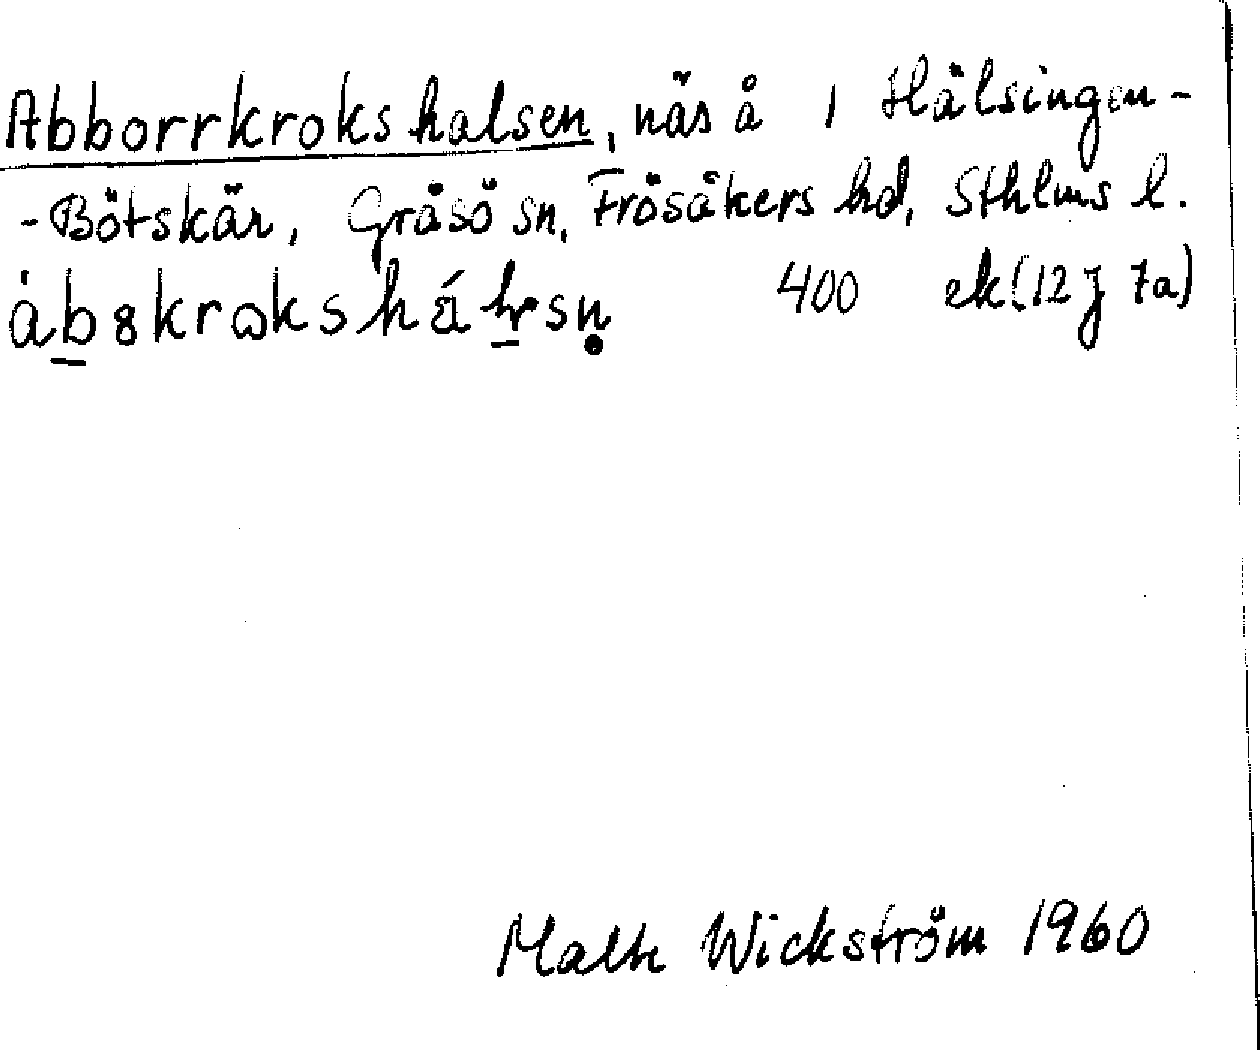 Abborrkrokshalsen, näs å 1 Hälsingen-
-Bötskär, Gräsö sn, Frösåkers hd, Sthlms l.
400 ek (12 J 7a)
Malte Wickström 1960